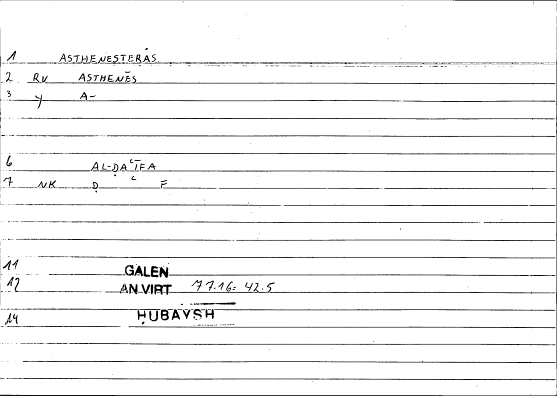 1 ASTHENESTERĀS
2 RV ASTHENĒS
3 Y A-
6 AL-ḌAʿĪFA
7 NK Ḍ ʿ F
11 GALEN
12 AN VIRT 77.16= 42.5
14 ḤUBAYSH